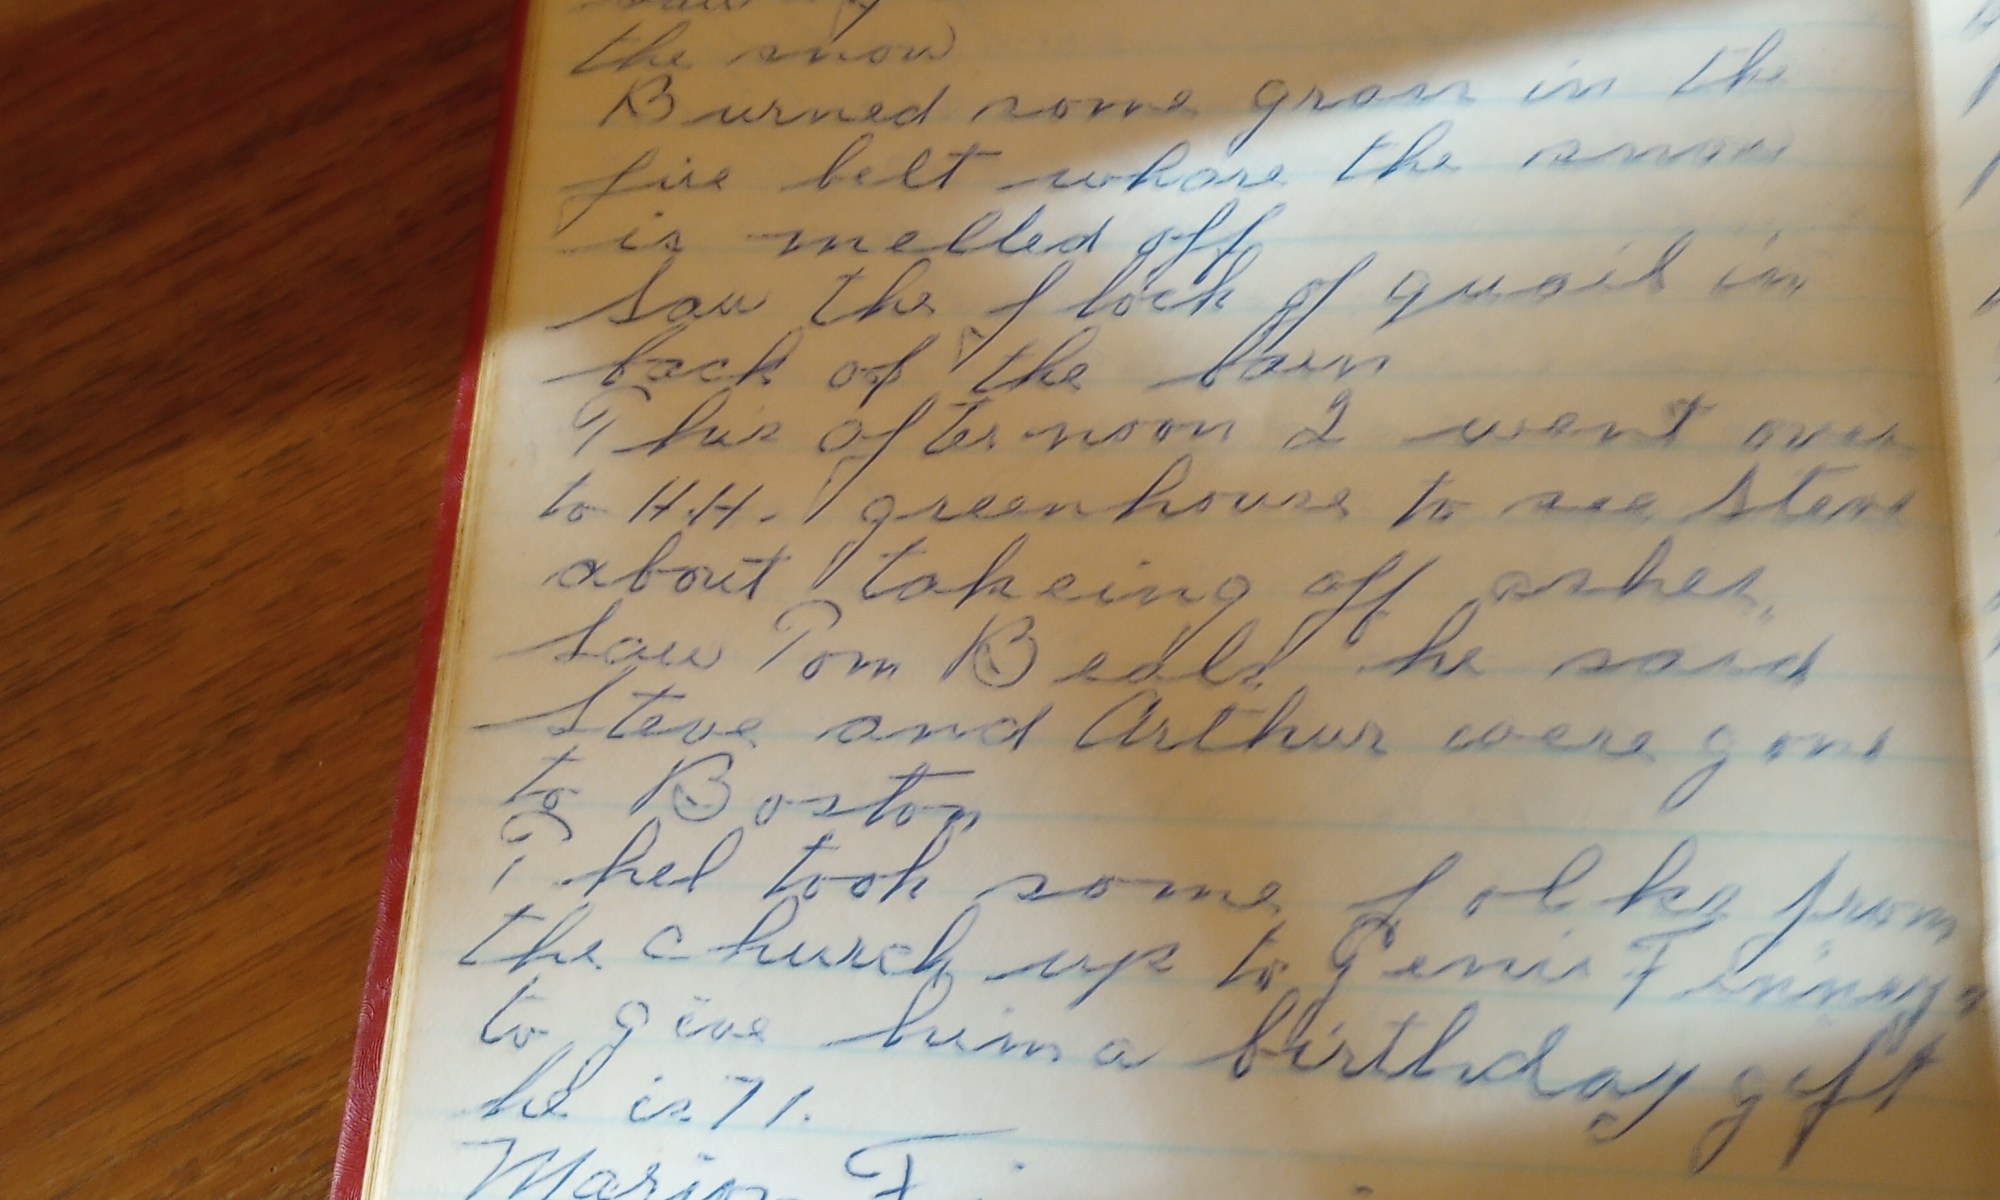 the snow
Burned some grass in the
fire belt whare the snow
is melled off
Saw the flock of quail in
back of the barn
This afternoon I went over
to H.H. greenhouse to see Steve
about takeing off ashes
Saw Tom Beals he said
Steve and Arthur were gone
to Boston
Thel took some folks from
the church up to Genie Finneys
to give him a birthday gift
he is 71.
Marion